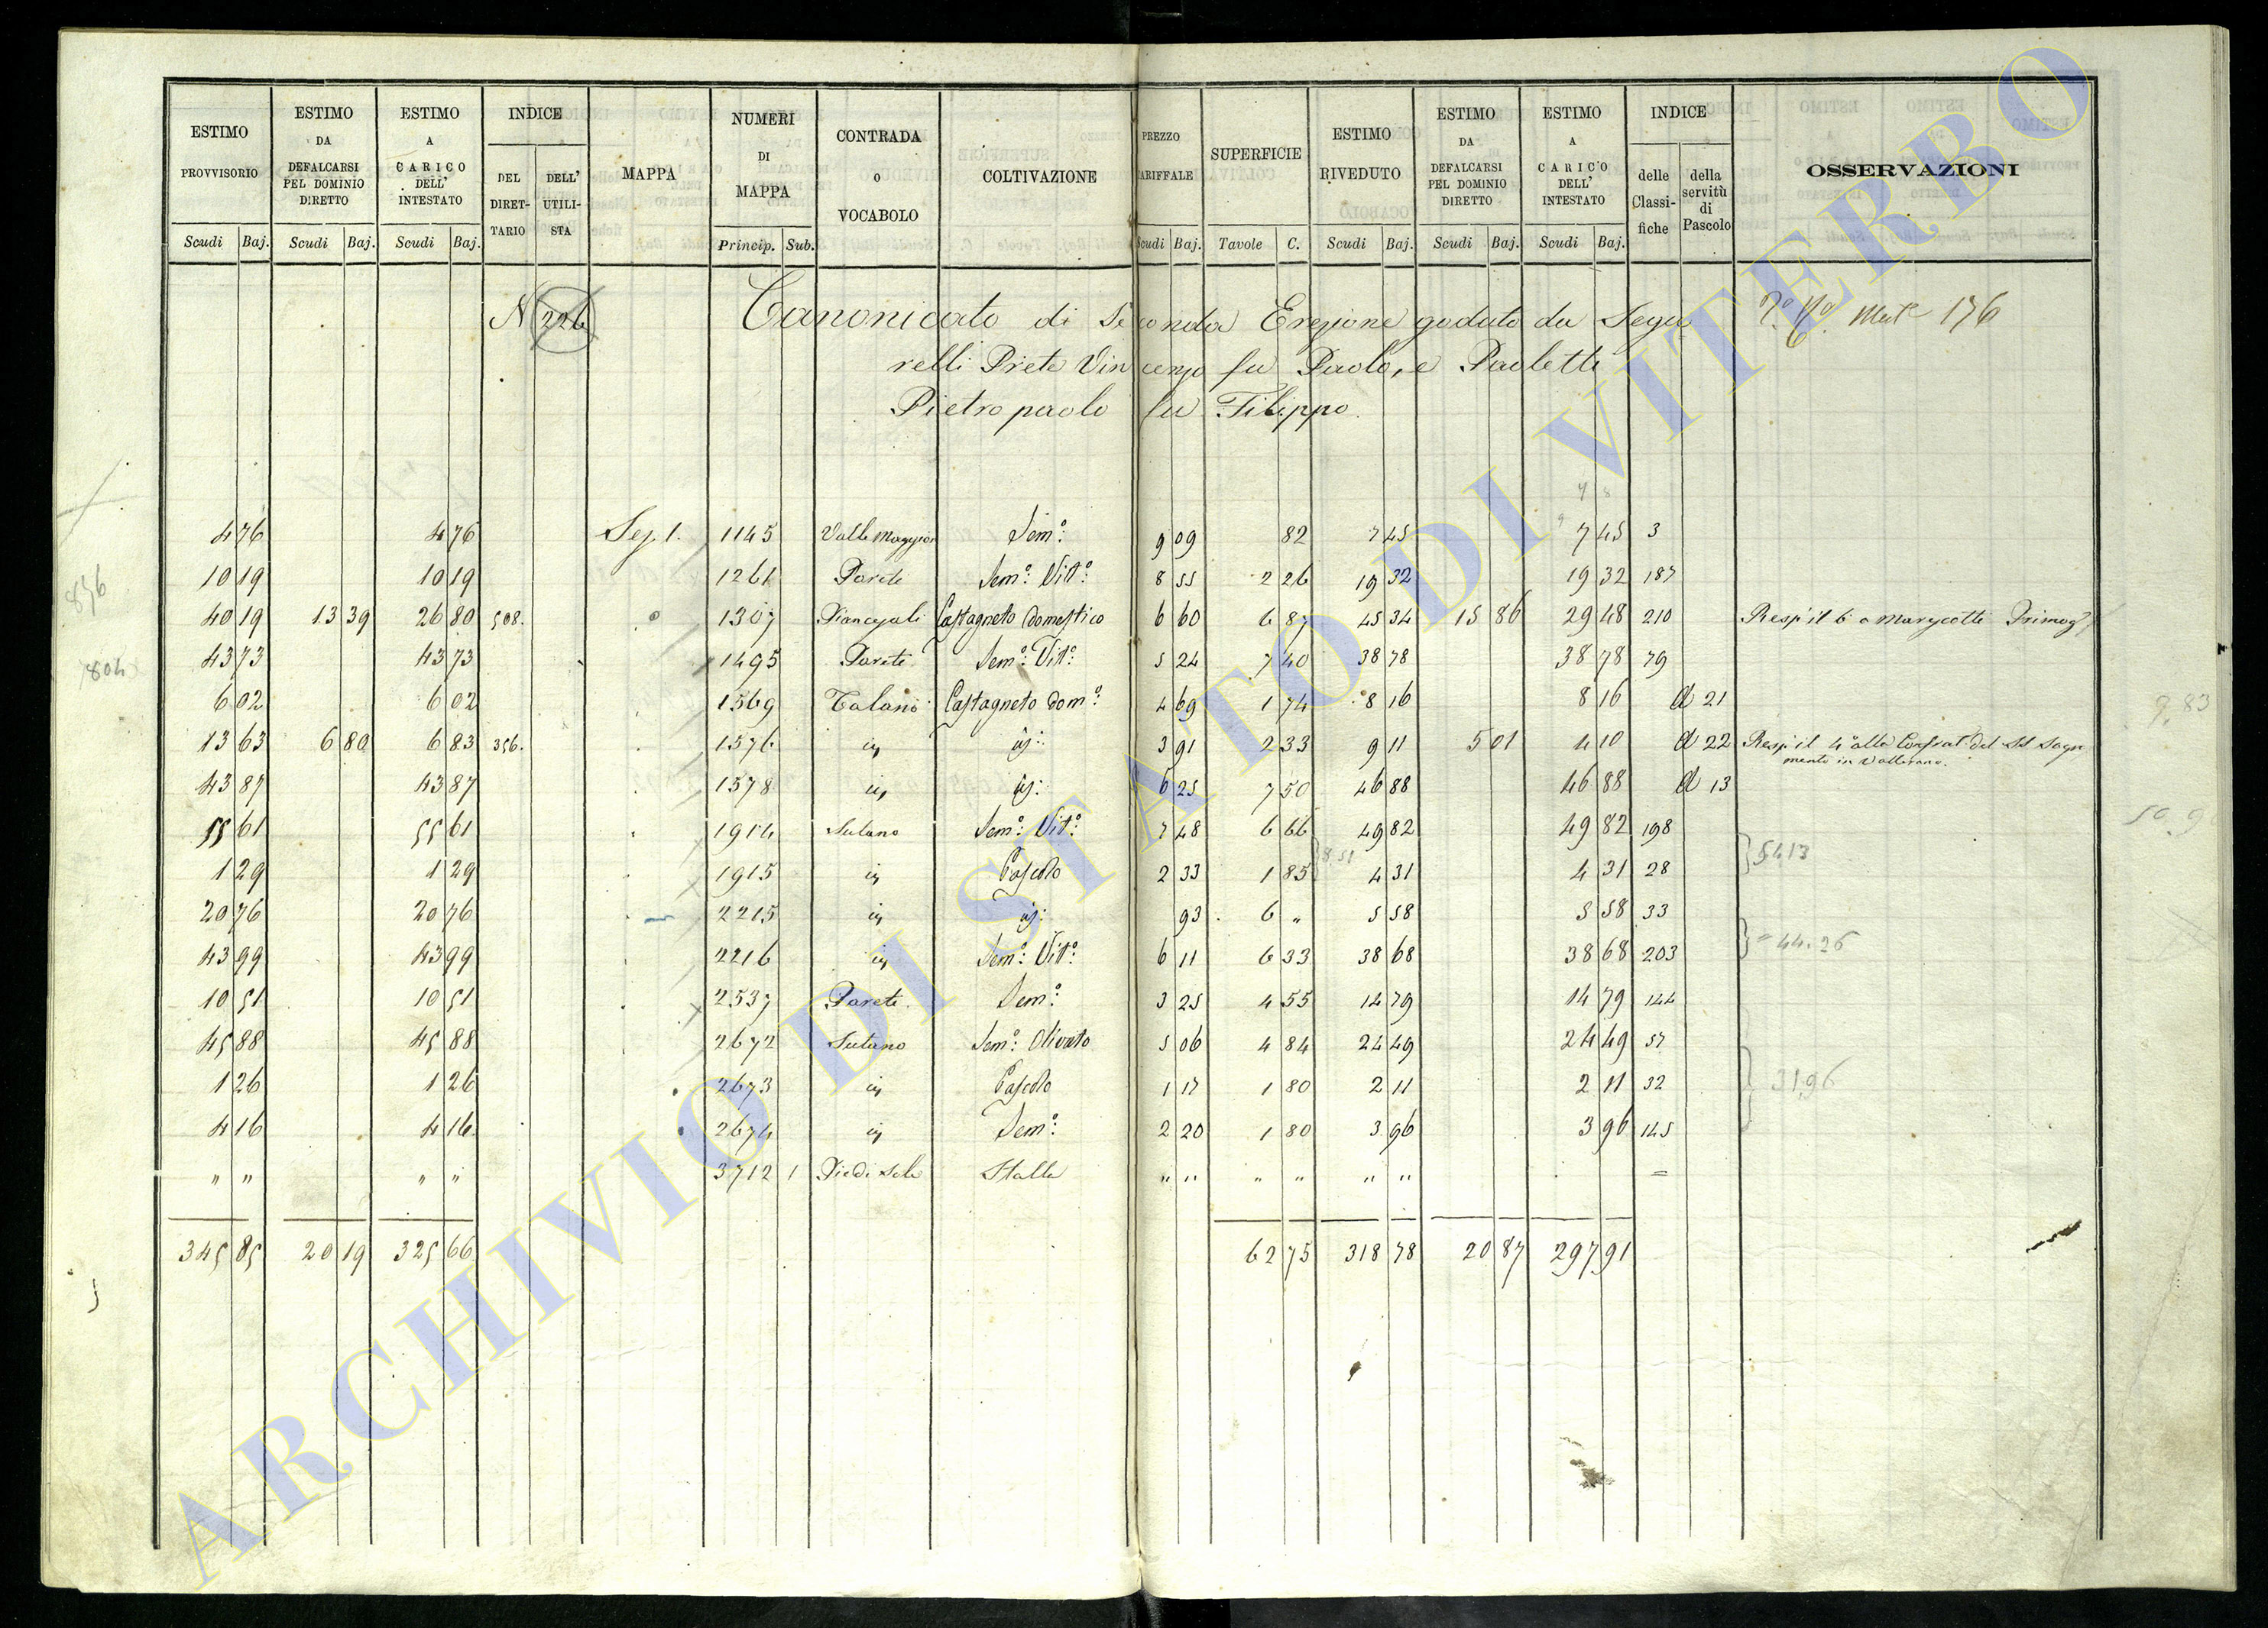 ESTIMO PROVVISORIO | ESTIMO DA DEFALCARSI PEL DOMINIO DIRETTO | ESTIMO A CARICO DELL' INTESTATO | INDICE DEL DIRETTARIO | DELL' UTILISTA | MAPPA | NUMERI DI MAPPA | CONTRADA O VOCABOLO | COLTIVAZIONE | PREZZO TARIFFALE | SUPERFICIE | ESTIMO RIVEDUTO | ESTIMO DA DEFALCARSI PEL DOMINIO DIRETTO | ESTIMO A CARICO DELL' INTESTATO | INDICE delle Classifiche | della servitù di Pascolo | OSSERVAZIONI
Scudi Baj. | Scudi Baj. | Scudi Baj. | Princip. Sub. | Scudi Baj. | Tavole C. | Scudi Baj. | Scudi Baj. | Scudi Baj.
N 226 Canonicato di Seconda Erezione goduto da Segarelli Prete Vincenzo fu Paolo, e Paoletti
Pietropaolo fu Filippo. 176
4 76 | 4 76 | Sez. 1. | 1145 | Valle Maggiore | Sem.º | 9 09 | 82 | 7 45 | 7 45 | 3
10 19 | 10 19 | 1261 | Parete | Sem.º Vit.º | 8 55 | 2 26 | 19 32 | 19 32 | 187
40 19 | 13 39 | 26 80 | 508. | 1307 | Castagneto Domestico | 6 60 | 6 87 | 45 34 | 15 86 | 29 48 | 210 | Resp. il 6º a Primog.
43 73 | 43 73 | 1495 | Parete | Sem.º Vit.º | 5 24 | 7 40 | 38 78 | 38 78 | 79
6 02 | 6 02 | 1569 | Talano | Castagneto Dom.º | 4 69 | 1 74 | 8 16 | 8 16 | d 21
13 63 | 6 80 | 6 83 | 356. | 1576 | 3 91 | 2 33 | 9 11 | 5 01 | 4 10 | d 22 | Resp. il 4º alla Confrat. del SS Sagramento in Vallerano.
43 87 | 43 87 | 1578 | 6 25 | 7 50 | 46 88 | 46 88 | d 13
55 61 | 55 61 | 1914 | Sutano | Sem.º Vit.º | 7 48 | 6 66 | 49 82 | 49 82 | 198
1 29 | 1 29 | 1915 | Pascolo | 2 33 | 1 85 | 8.51 | 4 31 | 4 31 | 28 | 54.13
20 76 | 20 76 | 2215 | 93 | 6 " | 5 58 | 5 58 | 33
43 99 | 43 99 | 2216 | Sem.º Vit.º | 6 11 | 6 33 | 38 68 | 38 68 | 203 | 44.26
10 51 | 10 51 | 2537 | Parete | Sem.º | 3 25 | 4 55 | 14 79 | 14 79 | 144
45 88 | 45 88 | 2672 | Sutano | Sem.º Olivato | 5 06 | 4 84 | 24 49 | 24 49 | 57
1 26 | 1 26 | 2673 | Pascolo | 1 17 | 1 80 | 2 11 | 2 11 | 32 | 31.96
4 16 | 4 16 | 2674 | Sem.º | 2 20 | 1 80 | 3 96 | 3 96 | 145
" " | " " | 3712 1 | Stalla | " " | " " | " " | =
345 85 | 20 19 | 325 66 | 62 75 | 318 78 | 20 87 | 297 91
856
804
9.83
ARCHIVIO DI STATO DI VITERBO